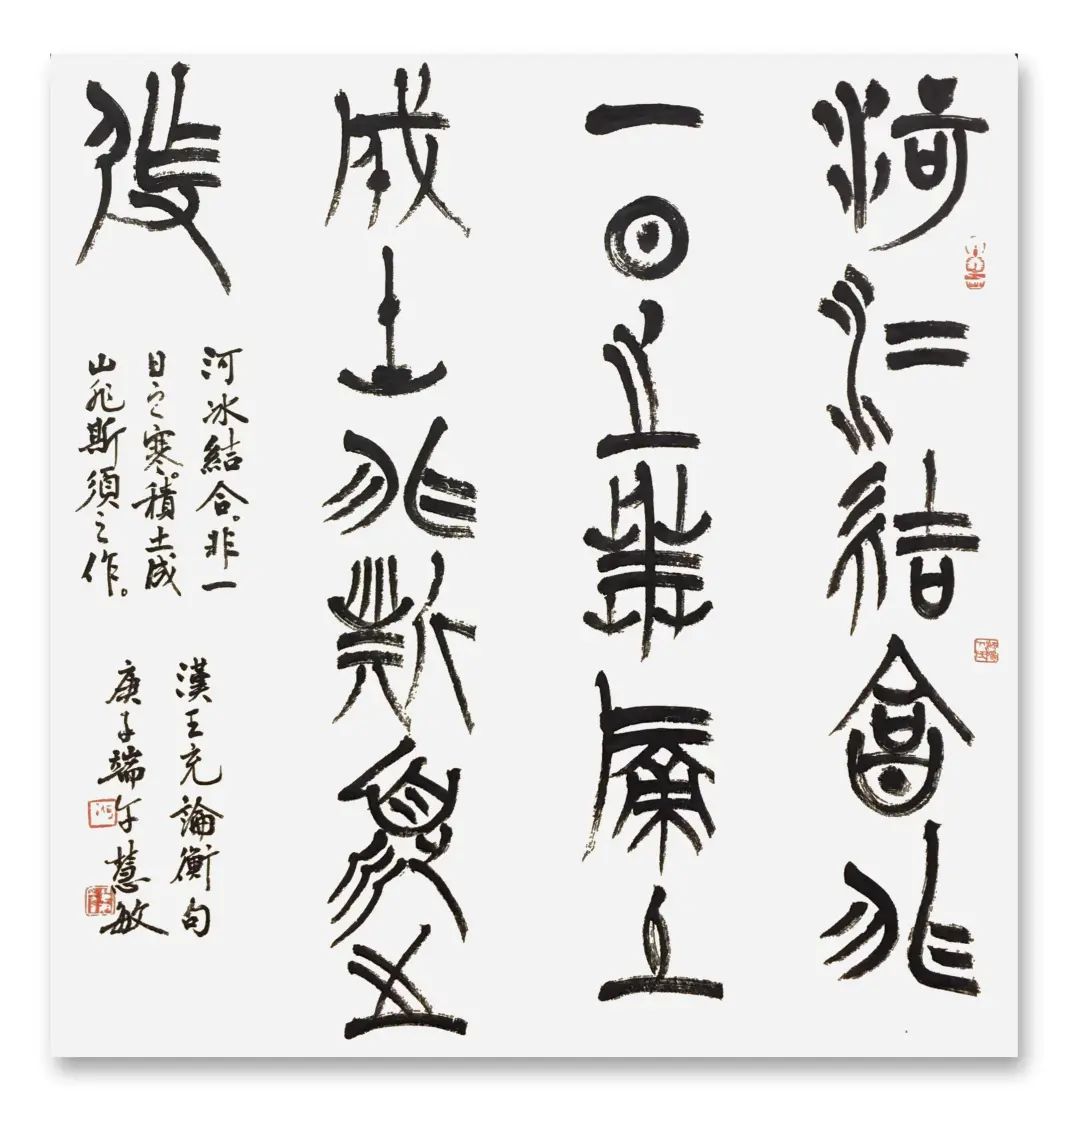 河冰結合非
一日之寒積土
成山非斯須之
作
河冰結合。非一
日之寒。積土成
山非斯須之作。
漢王充論衡句
庚子端午慧敏